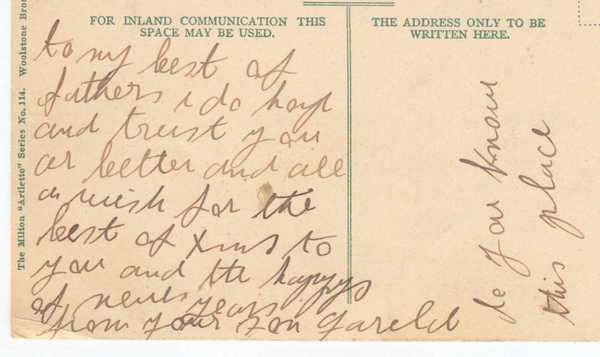 FOR INLAND COMMUNICATION THIS
SPACE MAY BE USED.
THE ADDRESS ONLY TO BE
WRITTEN HERE.
The Milton "Artlette" Series No. 114. Woolstone Bros
to my best of
fathers i do hop
and trust you
ar better and all
a wish for the
best of Xmas to
you and the happys
of neues years
from your son
do you know
this place